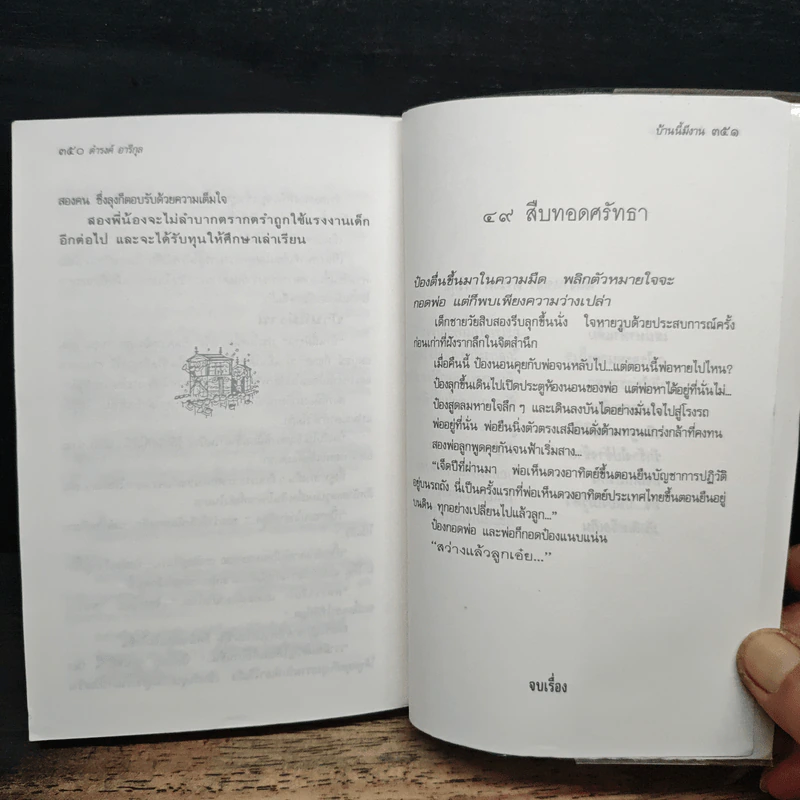 ๓๕๐ ดำรงค์ อารีกุล
สองคน ซึ่งลุงก็ตอบรับด้วยความเต็มใจ
สองพี่น้องจะไม่ลำบากตรากตรำถูกใช้แรงงานเด็ก
อีกต่อไป และจะได้รับทุนให้ศึกษาเล่าเรียน
บ้านนี้มีงาน ๓๕๑
๔๙ สืบทอดศรัทธา
ป๋องตื่นขึ้นมาในความมืด พลิกตัวหมายใจจะ
กอดพ่อ แต่ก็พบเพียงความว่างเปล่า
เด็กชายวัยสิบสองรีบลุกขึ้นนั่ง ใจหายวูบด้วยประสบการณ์ครั้ง
ก่อนเก่าที่ฝังรากลึกในจิตสำนึก
เมื่อคืนนี้ ป๋องนอนคุยกับพ่อจนหลับไป...แต่ตอนนี้พ่อหายไปไหน?
ป๋องลุกขึ้นเดินไปเปิดประตูห้องนอนของพ่อ แต่พ่อหาได้อยู่ที่นั่นไม่...
ป๋องสูดลมหายใจลึก ๆ และเดินลงบันไดอย่างมั่นใจไปสู่โรงรถ
พ่ออยู่ที่นั่น พ่อยืนนิ่งตัวตรงเสมือนดั่งด้ามทวนแกร่งกล้าที่คงทน
สองพ่อลูกพูดคุยกันจนฟ้าเริ่มสาง...
“เจ็ดปีที่ผ่านมา พ่อเห็นดวงอาทิตย์ขึ้นตอนยืนบัญชาการปฏิวัติ
อยู่บนรถถัง นี่เป็นครั้งแรกที่พ่อเห็นดวงอาทิตย์ประเทศไทยขึ้นตอนยืนอยู่
บนดิน ทุกอย่างเปลี่ยนไปแล้วลูก...”
ป๋องกอดพ่อ และพ่อก็กอดป๋องแนบแน่น
“สว่างแล้วลูกเอ๋ย...”
จบเรื่อง